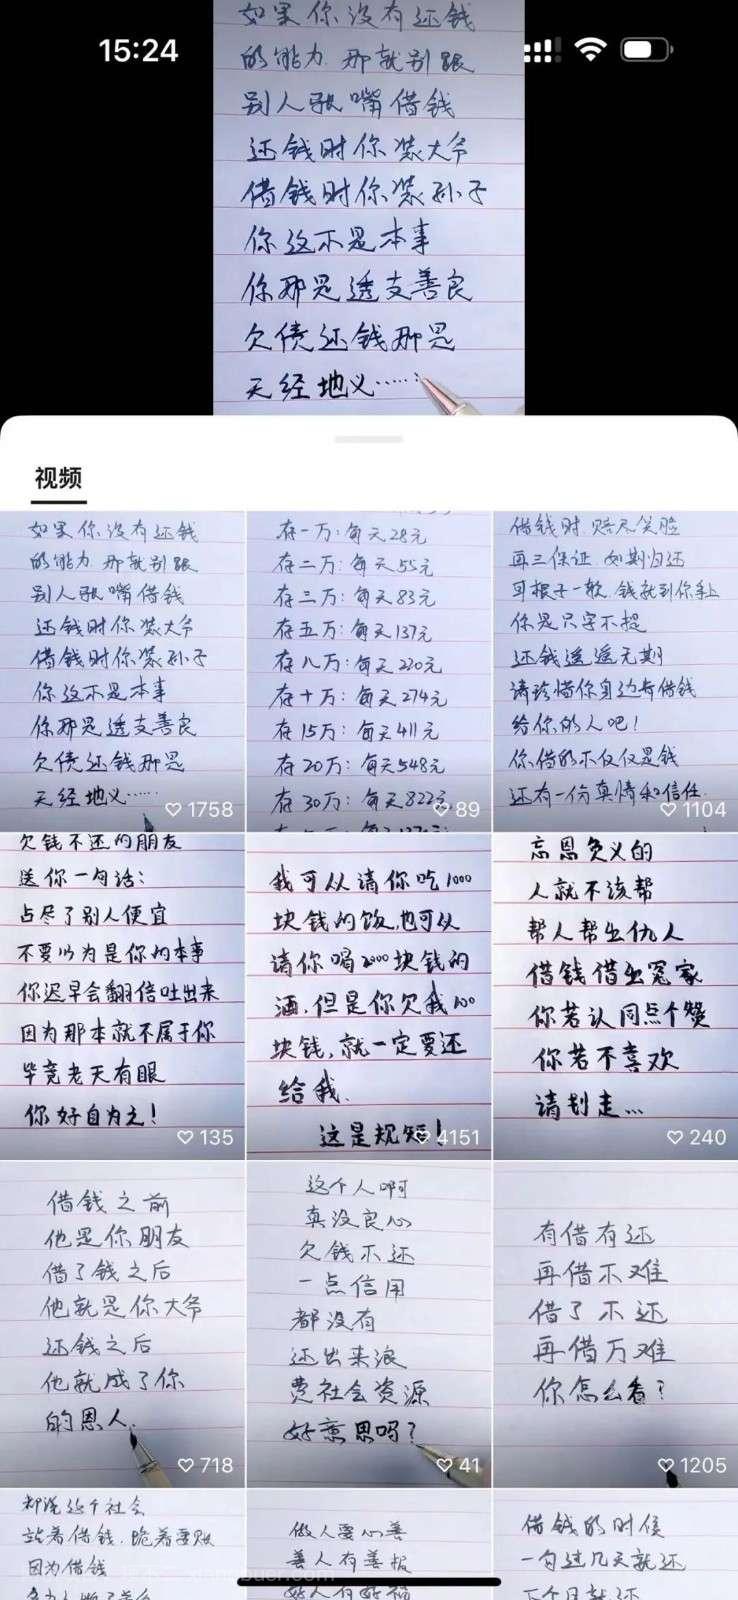 如果你没有还钱
15:24
的能力.那就别跟
别人张嘴借钱
还钱时你装大爷
借钱时你装孙子
你这不是本事
你那是透支善良
欠债还钱那是
天经地义……
视频
如果你没有还钱
的能力.那就别跟
别人张嘴借钱
还钱时你装大爷
借钱时你装孙子
你这不是本事
你那是透支善良
欠债还钱那是
天经地义……
1758
存一万：每天28元
存二万：每天55元
存三万：每天83元
存五万：每天137元
存八万：每天220元
存十万：每天274元
存15万：每天411元
存20万：每天548元
存30万：每天822元
89
借钱时.赔尽笑脸
再三保证.如期归还
耳根子一软.钱就到你手上
你是只字不提
还钱遥遥无期
请珍惜你身边每借钱
给你的人吧！
你借的不仅仅是钱
还有一份真情和信任.
1104
欠钱不还的朋友
送你一句话：
占尽了别人便宜
不要以为是你的本事
你迟早会翻倍吐出来
因为那本就不属于你
毕竟老天有眼
你好自为之！
135
我可以请你吃1000
块钱的饭,也可以
请你喝2000块钱的
酒,但是你欠我100
块钱,就一定要还
给我.
这是规矩！
4151
忘恩负义的
人就不该帮
帮人帮出仇人
借钱借出冤家
你若认同点个赞
你若不喜欢
请划走...
240
借钱之前
他是你朋友
借了钱之后
他就是你大爷
还钱之后
他就成了你
的恩人.
718
这个人啊
真没良心
欠钱不还
一点信用
都没有
还出来浪
费社会资源
好意思吗？
41
有借有还
再借不难
借了不还
再借万难
你怎么看？
1205
都说这个社会
站着借钱.跪着要账
因为借钱
做人要心善
善人有善报
好人有好福
借钱的时候
一句过几天就还
下个月就还